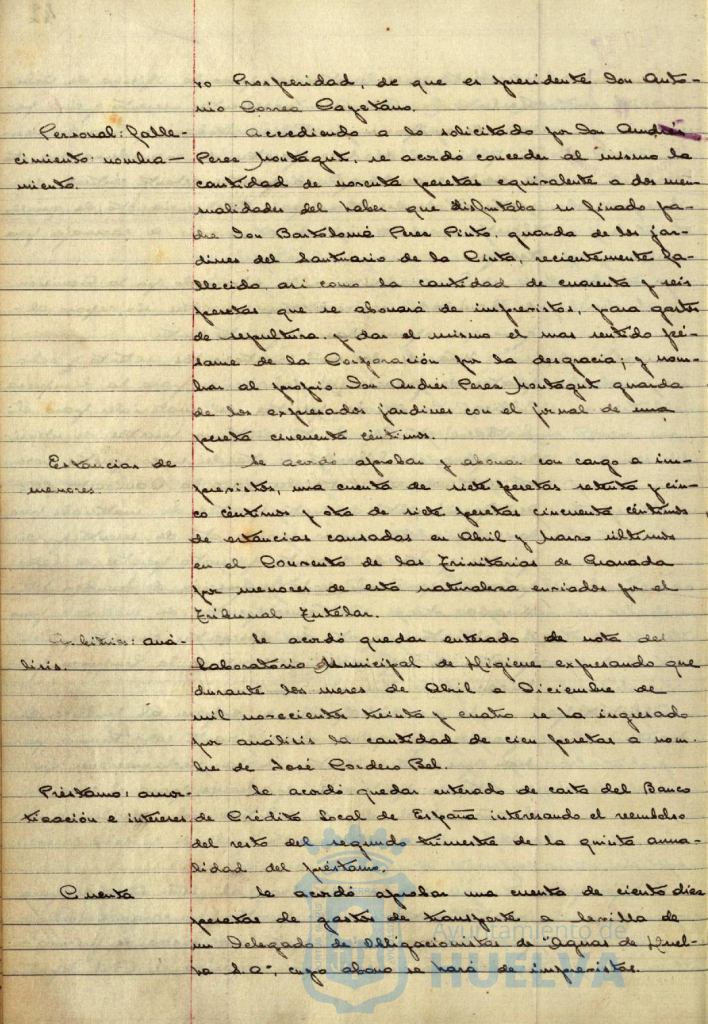 ro Prosperidad, de que es presidente Don Anto-
nio Correa Cayetano.
Personal: falle-
cimiento: nombra-
miento.
Accediendo a lo solicitado por Don Andrés
Perez Montagut, se acordó conceder al mismo la
cantidad de noventa pesetas equivalente a dos men-
sualidades del haber que disfrutaba su finado pa-
dre Don Bartolomé Perez Pinto, guarda de los jar-
dines del Santuario de la Cinta, recientemente fa-
llecido, asi como la cantidad de cuarenta y seis
pesetas que se abonará de imprevistos, para gastos
de sepultura, y dar el mismo el mas sentido pé-
same de la Corporación por la desgracia; y nom-
brar al propio Don Andrés Perez Montagut guarda
de los expresados jardines con el jornal de una
peseta cincuenta céntimos.
Estancias de
menores.
Se acordó aprobar y abonar con cargo a im-
previstos, una cuenta de siete pesetas setenta y cin-
co céntimos y otra de siete pesetas cincuenta céntimos,
de estancias causadas en Abril y Marzo últimos
en el Convento de las Trinitarias de Granada
por menores de esta naturaleza enviados por el
Tribunal Tutelar.
Arbitrios: aná-
lisis.
Se acordó quedar enterado de nota del
Laboratorio Municipal de Higiene expresando que
durante los meses de Abril a Diciembre de
mil novecientos treinta y cuatro se ha ingresado
por análisis la cantidad de cien pesetas a nom-
bre de José Cordero Bel.
Préstamo: amor-
tización e intereses
Se acordó quedar enterado de carta del Banco
de Crédito Local de España interesando el reembolso
del resto del segundo trimestre de la quinta anua-
lidad del préstamo.
Cuenta
Se acordó aprobar una cuenta de ciento diez
pesetas de gastos de transporte a Sevilla de
un Delegado de Obligacionistas de "Aguas de Huel-
va S.A", cuyo abono se hará de imprevistos.
Ayuntamiento de
HUELVA